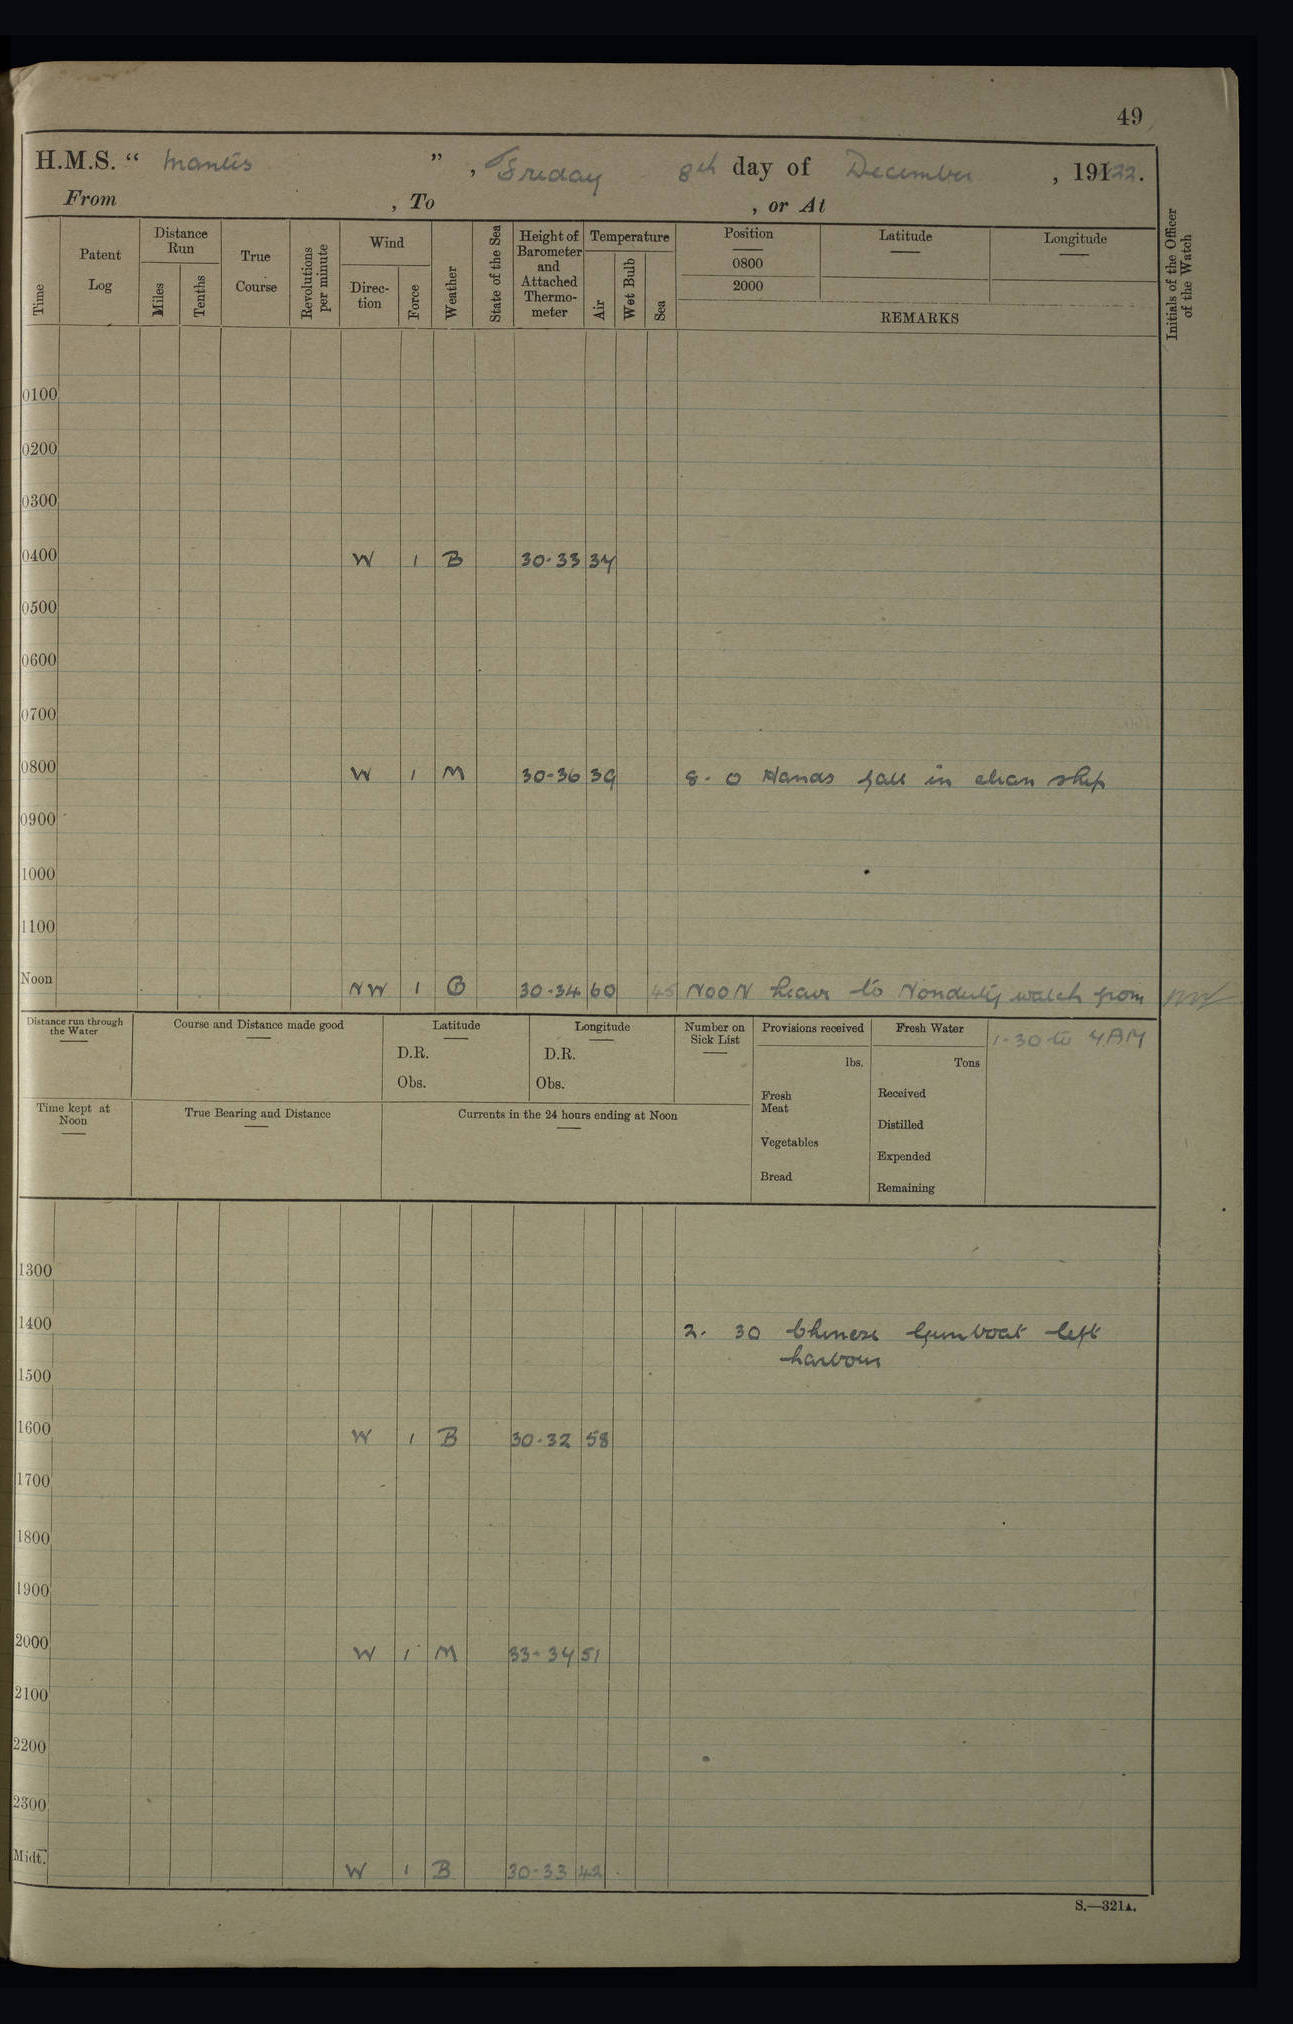 49
H.M.S. “ Mantis ” , Friday 8th day of December , 191 22.
From , To , or At
Time
Patent Log
Distance Run
Miles
Tenths
True Course
Revolutions per minute
Wind
Direc-tion
Force
Weather
State of the Sea
Height of Barometer and Attached Thermo-meter
Temperature
Air
Wet Bulb
Sea
Position
0800
2000
Latitude
Longitude
REMARKS
Initials of the Officer of the Watch
0100
0200
0300
0400 W 1 B 30-33 34
0500
0600
0700
0800 W 1 M 30-36 39 8. 0 Hands fall in clean ship
0900
1000
1100
Noon NW 1 B 30-34 60 45 NOON leave to Nonduty watch from
1-30 to 4 AM
Distance run through the Water
Course and Distance made good
Latitude
D.R.
Obs.
Longitude
D.R.
Obs.
Number on Sick List
Provisions received
lbs.
Fresh Meat
Vegetables
Bread
Fresh Water
Tons
Received
Distilled
Expended
Remaining
Time kept at Noon
True Bearing and Distance
Currents in the 24 hours ending at Noon
1300
1400 2. 30 Chinese Gunboat left
harbour
1500
1600 W 1 B 30-32 58
1700
1800
1900
2000 W 1 M 33-34 51
2100
2200
2300
Midt. W 1 B 30-33 42
S.—321A.